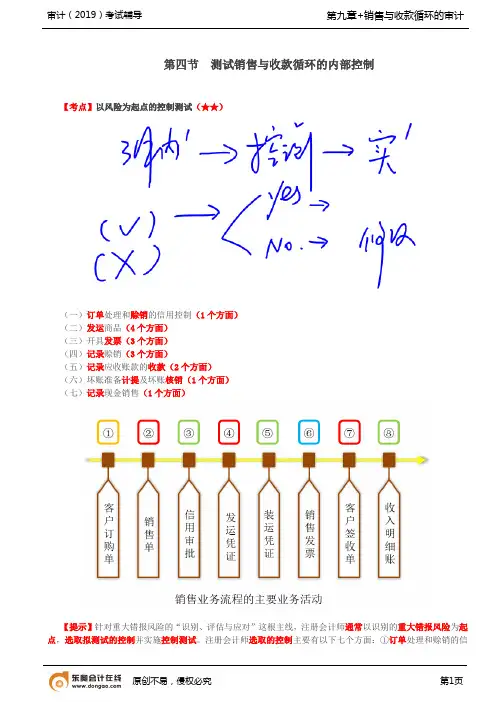 审计（2019）考试辅导 第九章+销售与收款循环的审计
第四节 测试销售与收款循环的内部控制
【考点】以风险为起点的控制测试（★★）
（√）
（×）
Yes
No.
（一）订单处理和赊销的信用控制（1个方面）
（二）发运商品（4个方面）
（三）开具发票（3个方面）
（四）记录赊销（3个方面）
（五）记录应收账款的收款（2个方面）
（六）坏账准备计提及坏账核销（1个方面）
（七）记录现金销售（1个方面）
① ② ③ ④ ⑤ ⑥ ⑦ ⑧
客户订购单
销售单
信用审批
发运凭证
装运凭证
销售发票
客户签收单
收入明细账
销售业务流程的主要业务活动
【提示】针对重大错报风险的“识别、评估与应对”这根主线，注册会计师通常以识别的重大错报风险为起
点，选取拟测试的控制并实施控制测试。注册会计师选取的控制主要有以下七个方面：①订单处理和赊销的信
东奥会计在线
www.dongao.com
原创不易，侵权必究 第1页